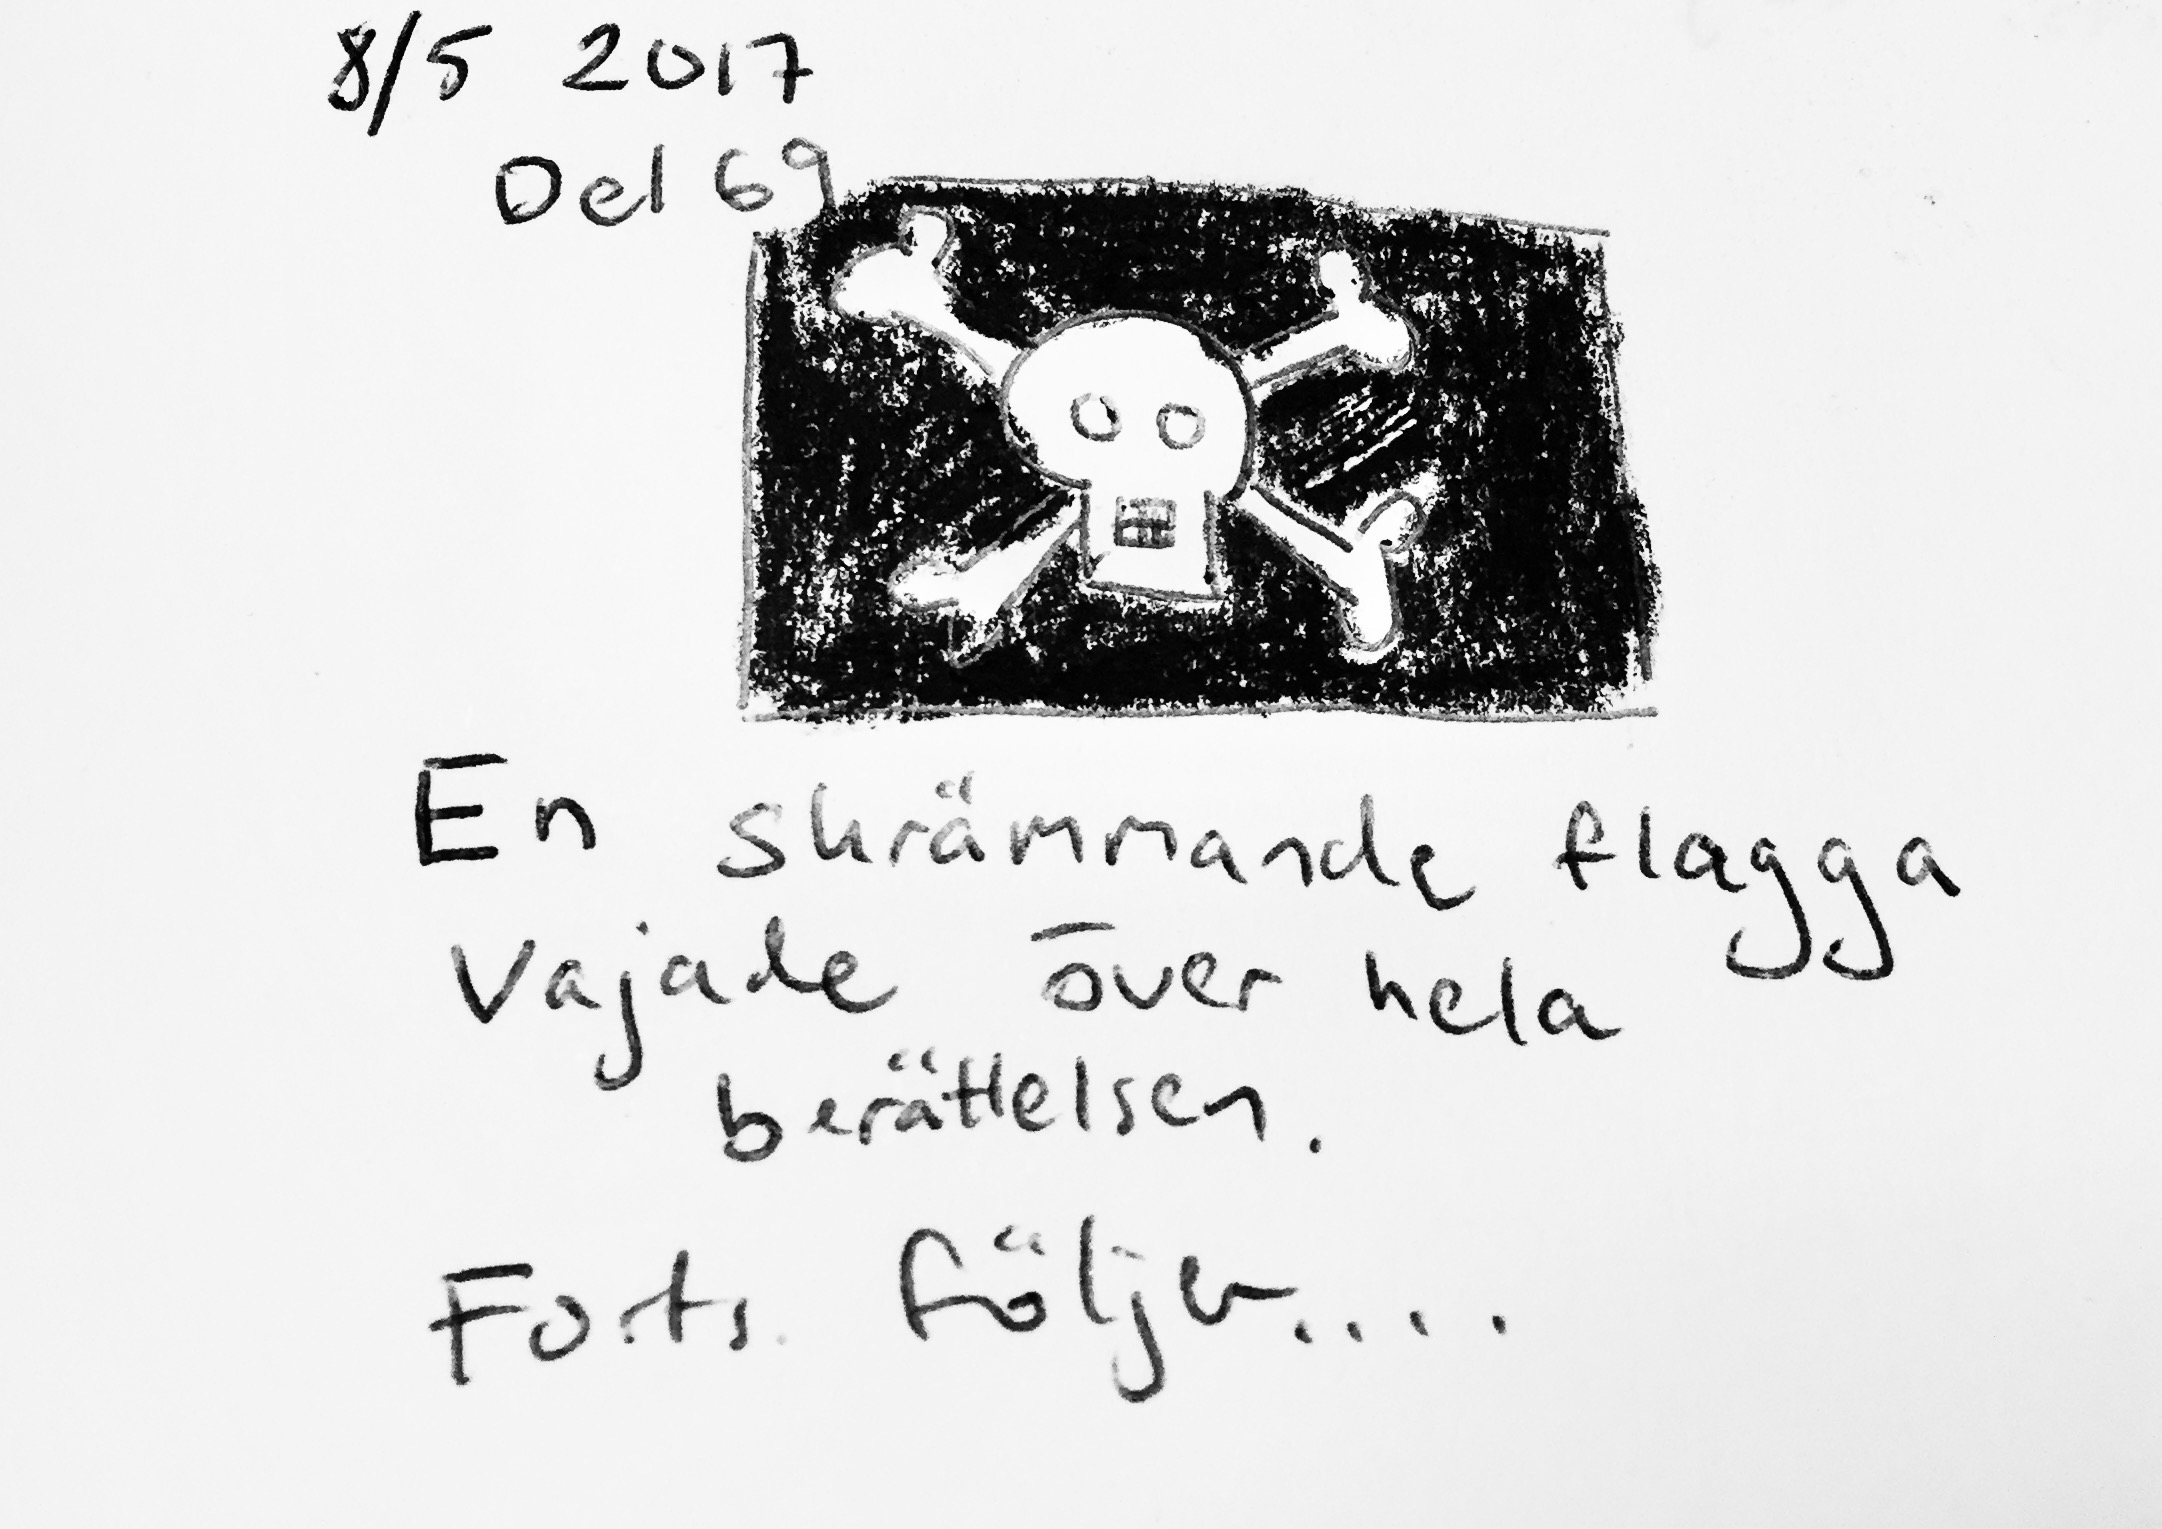 8/5 2017
Del 69
En skrämmande flagga
vajade över hela
berättelsen.
Forts. följer....